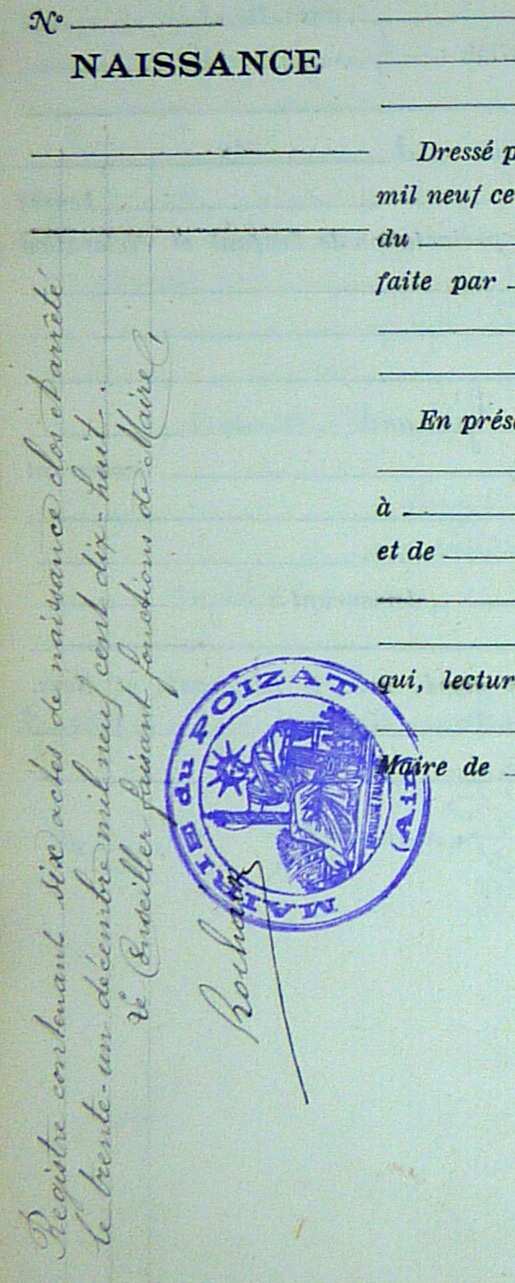 N°
NAISSANCE
Dressé p
mil neuf ce
du
faite par
En prés
à
et de
qui, lectur
Maire de
Registre contenant six actes de naissance clos et arrêté
le trente-un décembre mil neuf cent dix huit.
Le Conseiller faisant fonctions de Maire,
MAIRIE du POIZAT
(Ain)